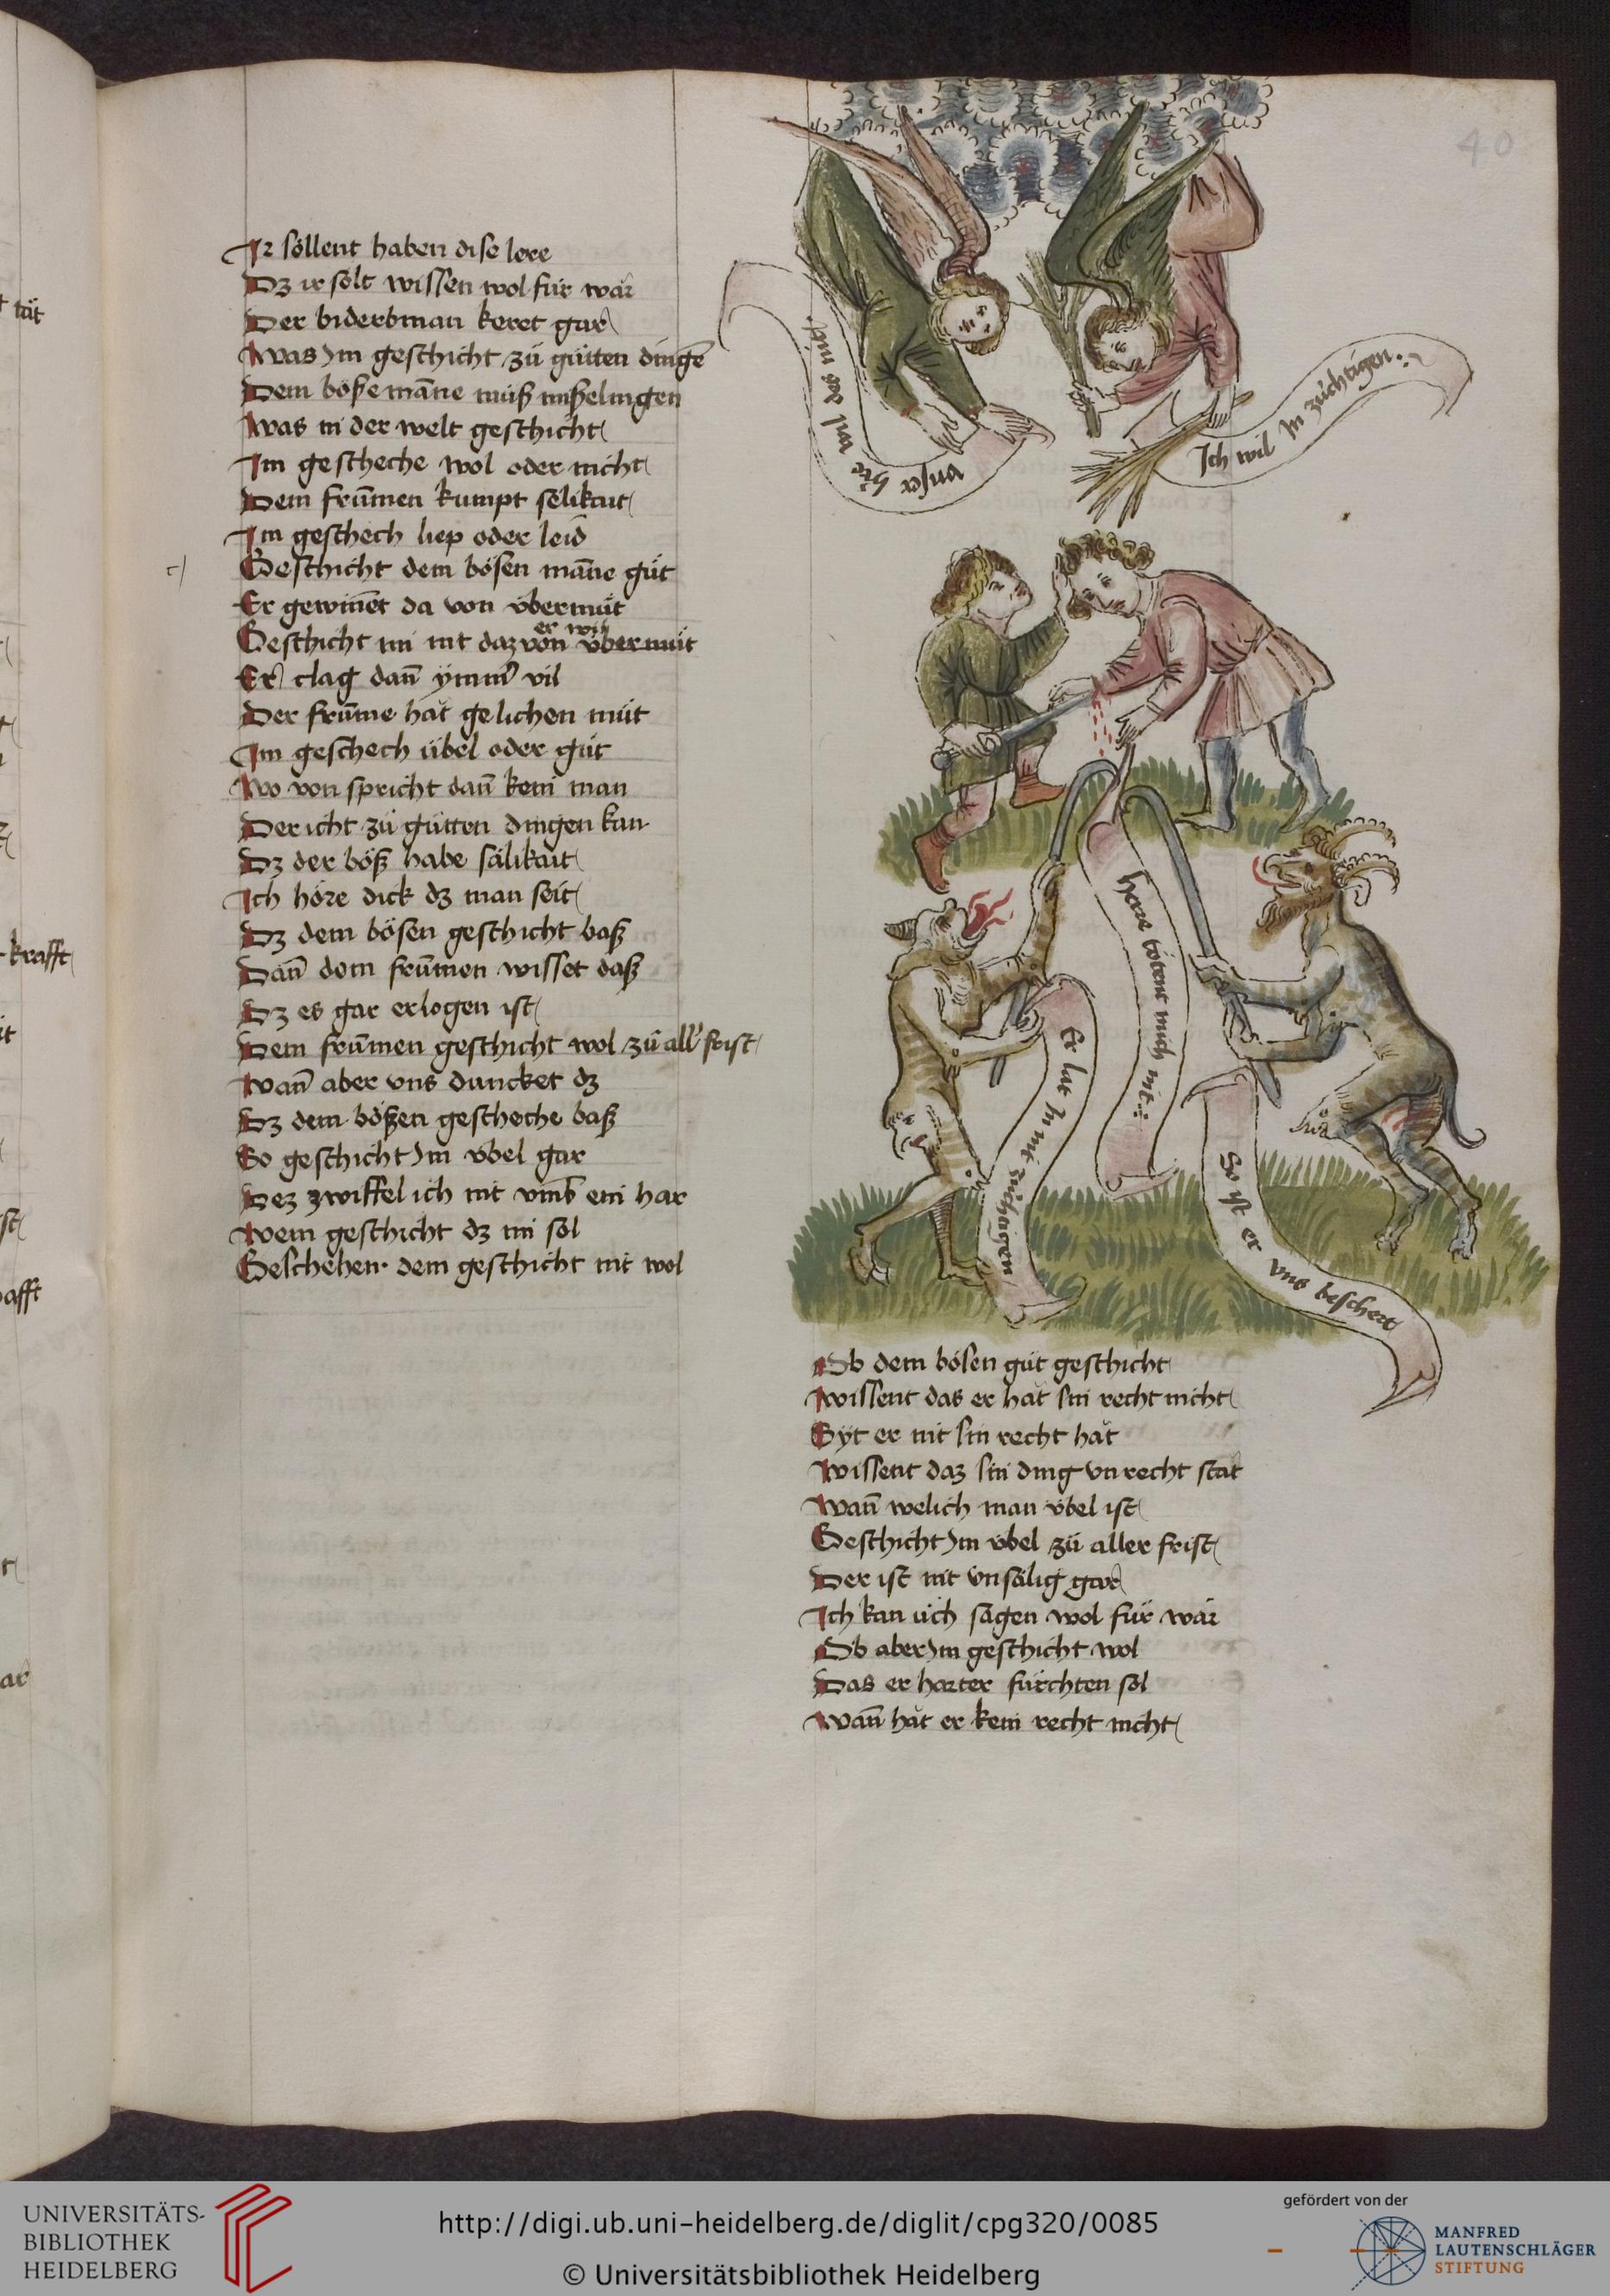 40
Ir söllent haben dise lere
Dz ir sölt wissen wol für war
Der biderbman keret gar
Was Im geschicht zu gütten dingē
Dem böße māne muß mißelingen
Was in der welt geschicht
Im gescheche wol oder nicht
Dem frūmen kumpt selikait
Im geschech liep oder leid
Geschicht dem bösen māne güt
Er gewiñet da von übermüt
er wil
Geschicht im nit daz von übermüt
Er clag dañ ymm̄ vil
Der frūme hăt gelichen müt
Im geschech übel oder güt
Wo von spricht dañ kein man
Der icht zu gütten dingen kan
Dz der böß habe sälikait
Ich höre dick dz man seit
Dz dem bösen geschicht baß
Dañ dem frūmen wisset daß
Dz es gar erlogen ist
Dem frūmen geschicht wol zu all' frist
Wañ aber vns duncket dz
Dz dem bößen gescheche baß
So geschicht Im übel gar
Dez zwiffel ich nit vmb ein har
Wem geschicht dz im sol
Geschehen dem geschicht nit wol
Ich wil In züchtigen
here tötent mich nit
Er lat In nit
So ist er vns beschert
Ob dem bösen güt geschicht
Wissent das er hăt sin recht nicht
Syt er nit sin recht hăt
Wissent daz sin ding vnrecht stat
Wañ welich man übel ist
Geschicht Im übel zü aller frist
Der ist nit vnsälig gar
Ich kan üch sagen wol für war
Ob aber Im geschicht wol
Das er harter fürchten sol
Wañ hăt er kein recht nicht
UNIVERSITÄTS-
BIBLIOTHEK
HEIDELBERG
http://digi.ub.uni-heidelberg.de/diglit/cpg320/0085
© Universitätsbibliothek Heidelberg
gefördert von der
MANFRED
LAUTENSCHLÄGER
STIFTUNG